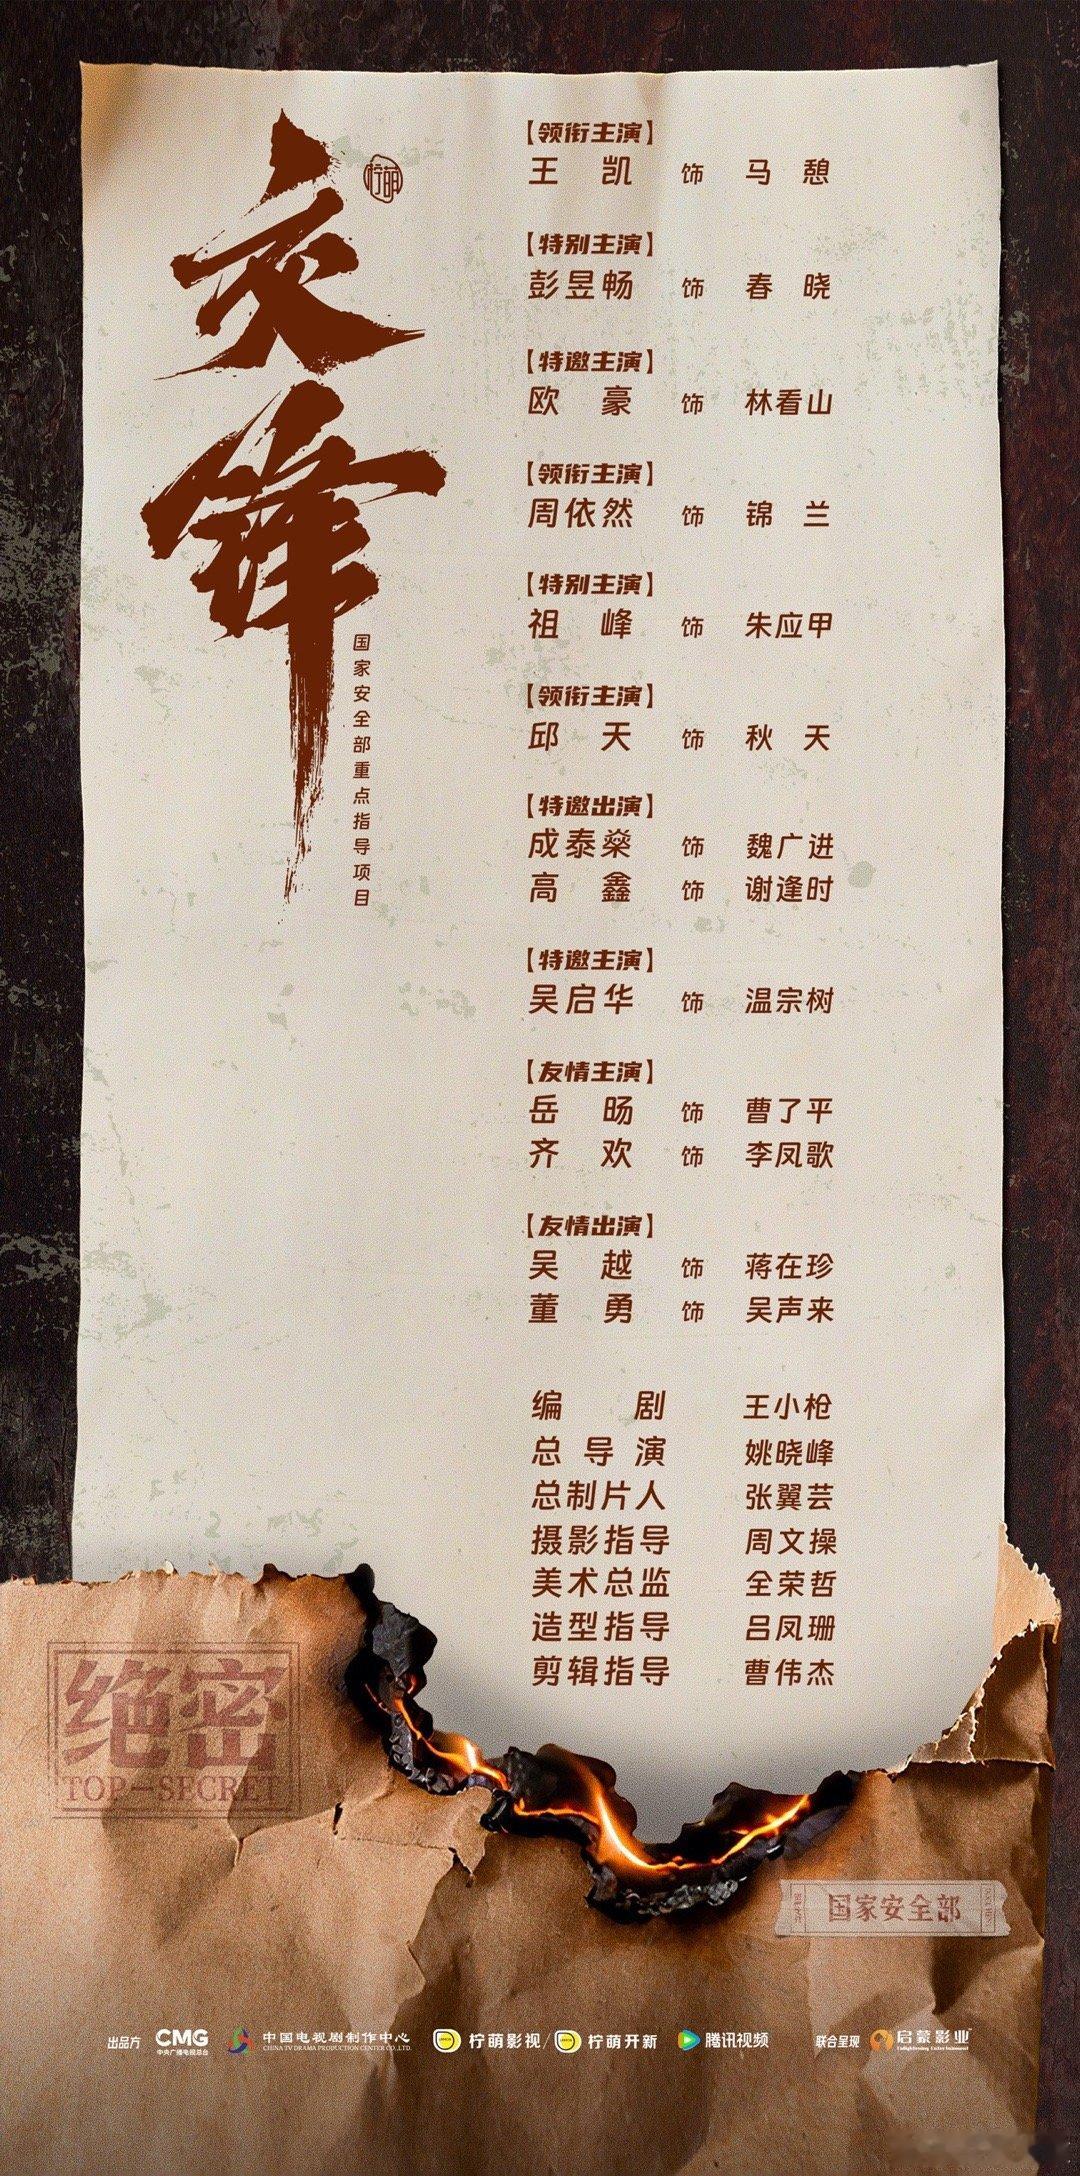 交锋
柠萌
国家安全部重点指导项目
【领衔主演】
王凯 饰 马憩
【特别主演】
彭昱畅 饰 春晓
【特邀主演】
欧豪 饰 林看山
【领衔主演】
周依然 饰 锦兰
【特别主演】
祖峰 饰 朱应甲
【领衔主演】
邱天 饰 秋天
【特邀出演】
成泰燊 饰 魏广进
高鑫 饰 谢逢时
【特邀主演】
吴启华 饰 温宗树
【友情主演】
岳旸 饰 曹了平
齐欢 饰 李凤歌
【友情出演】
吴越 饰 蒋在珍
董勇 饰 吴声来
编剧 王小枪
总导演 姚晓峰
总制片人 张翼芸
摄影指导 周文操
美术总监 全荣哲
造型指导 吕凤珊
剪辑指导 曹伟杰
绝密
TOP-SECRET
国家安全部
出品方 CMG 中央广播电视总台 中国电视剧制作中心 CHINA TV DRAMA PRODUCTION CENTER CO.,LTD. 柠萌影视/柠萌开新 腾讯视频 联合呈现 启蒙影业 Enlightening Entertainment